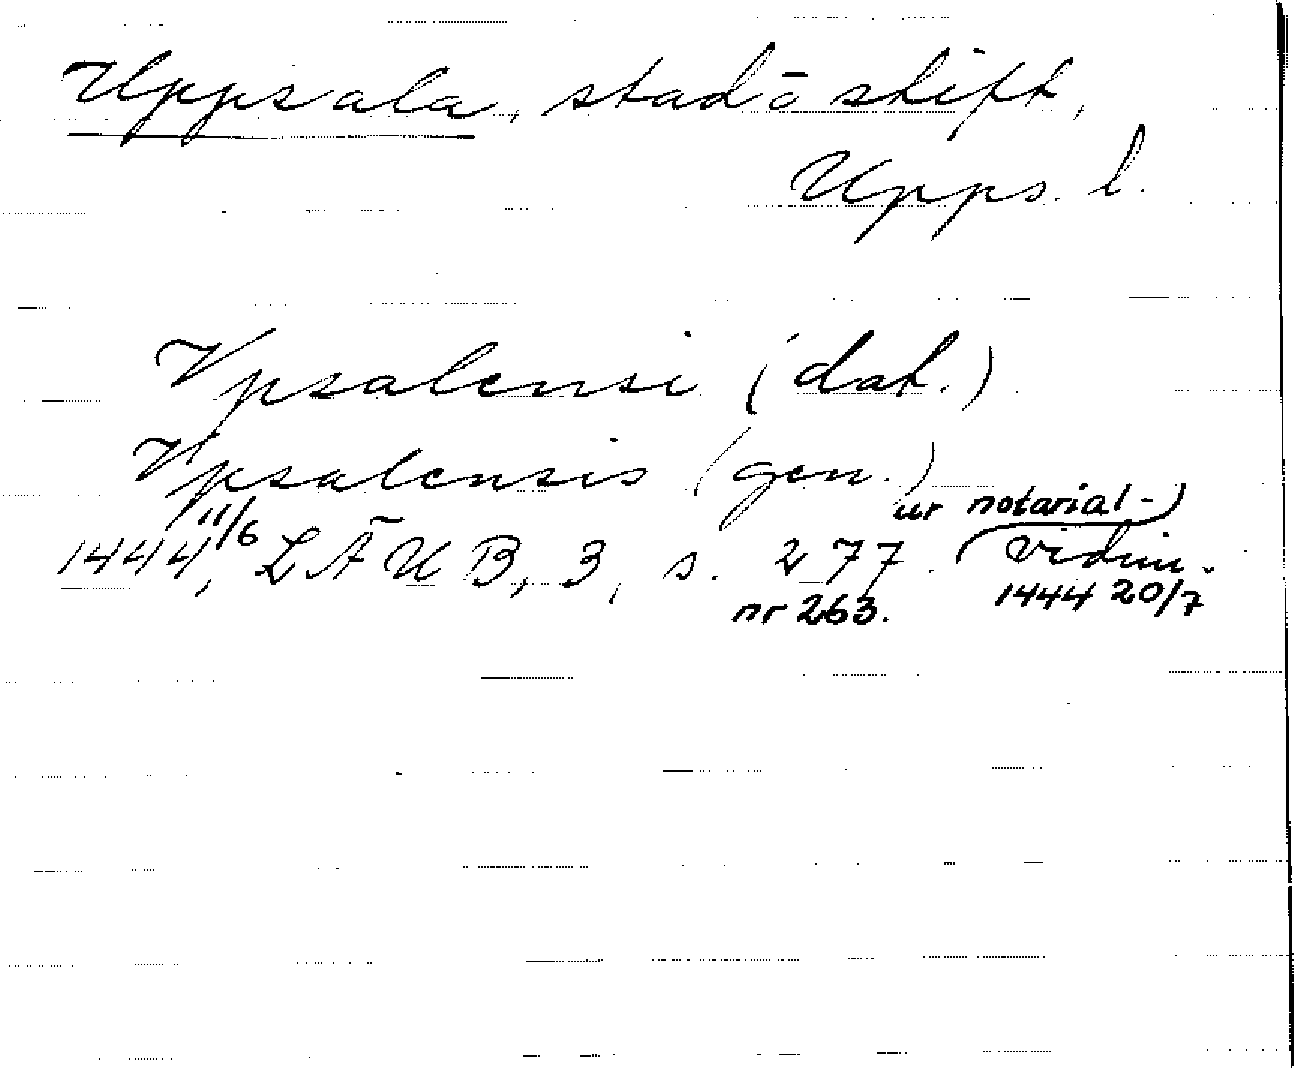 Uppsala, stad o skift,
Upps. l.
Vpsalensi (dat.)
Vpsalensis (gen.)
1444 11/6, LÄUB, 3, s. 277. (ur notarial-)
nr 263. vidim. 1444 20/7